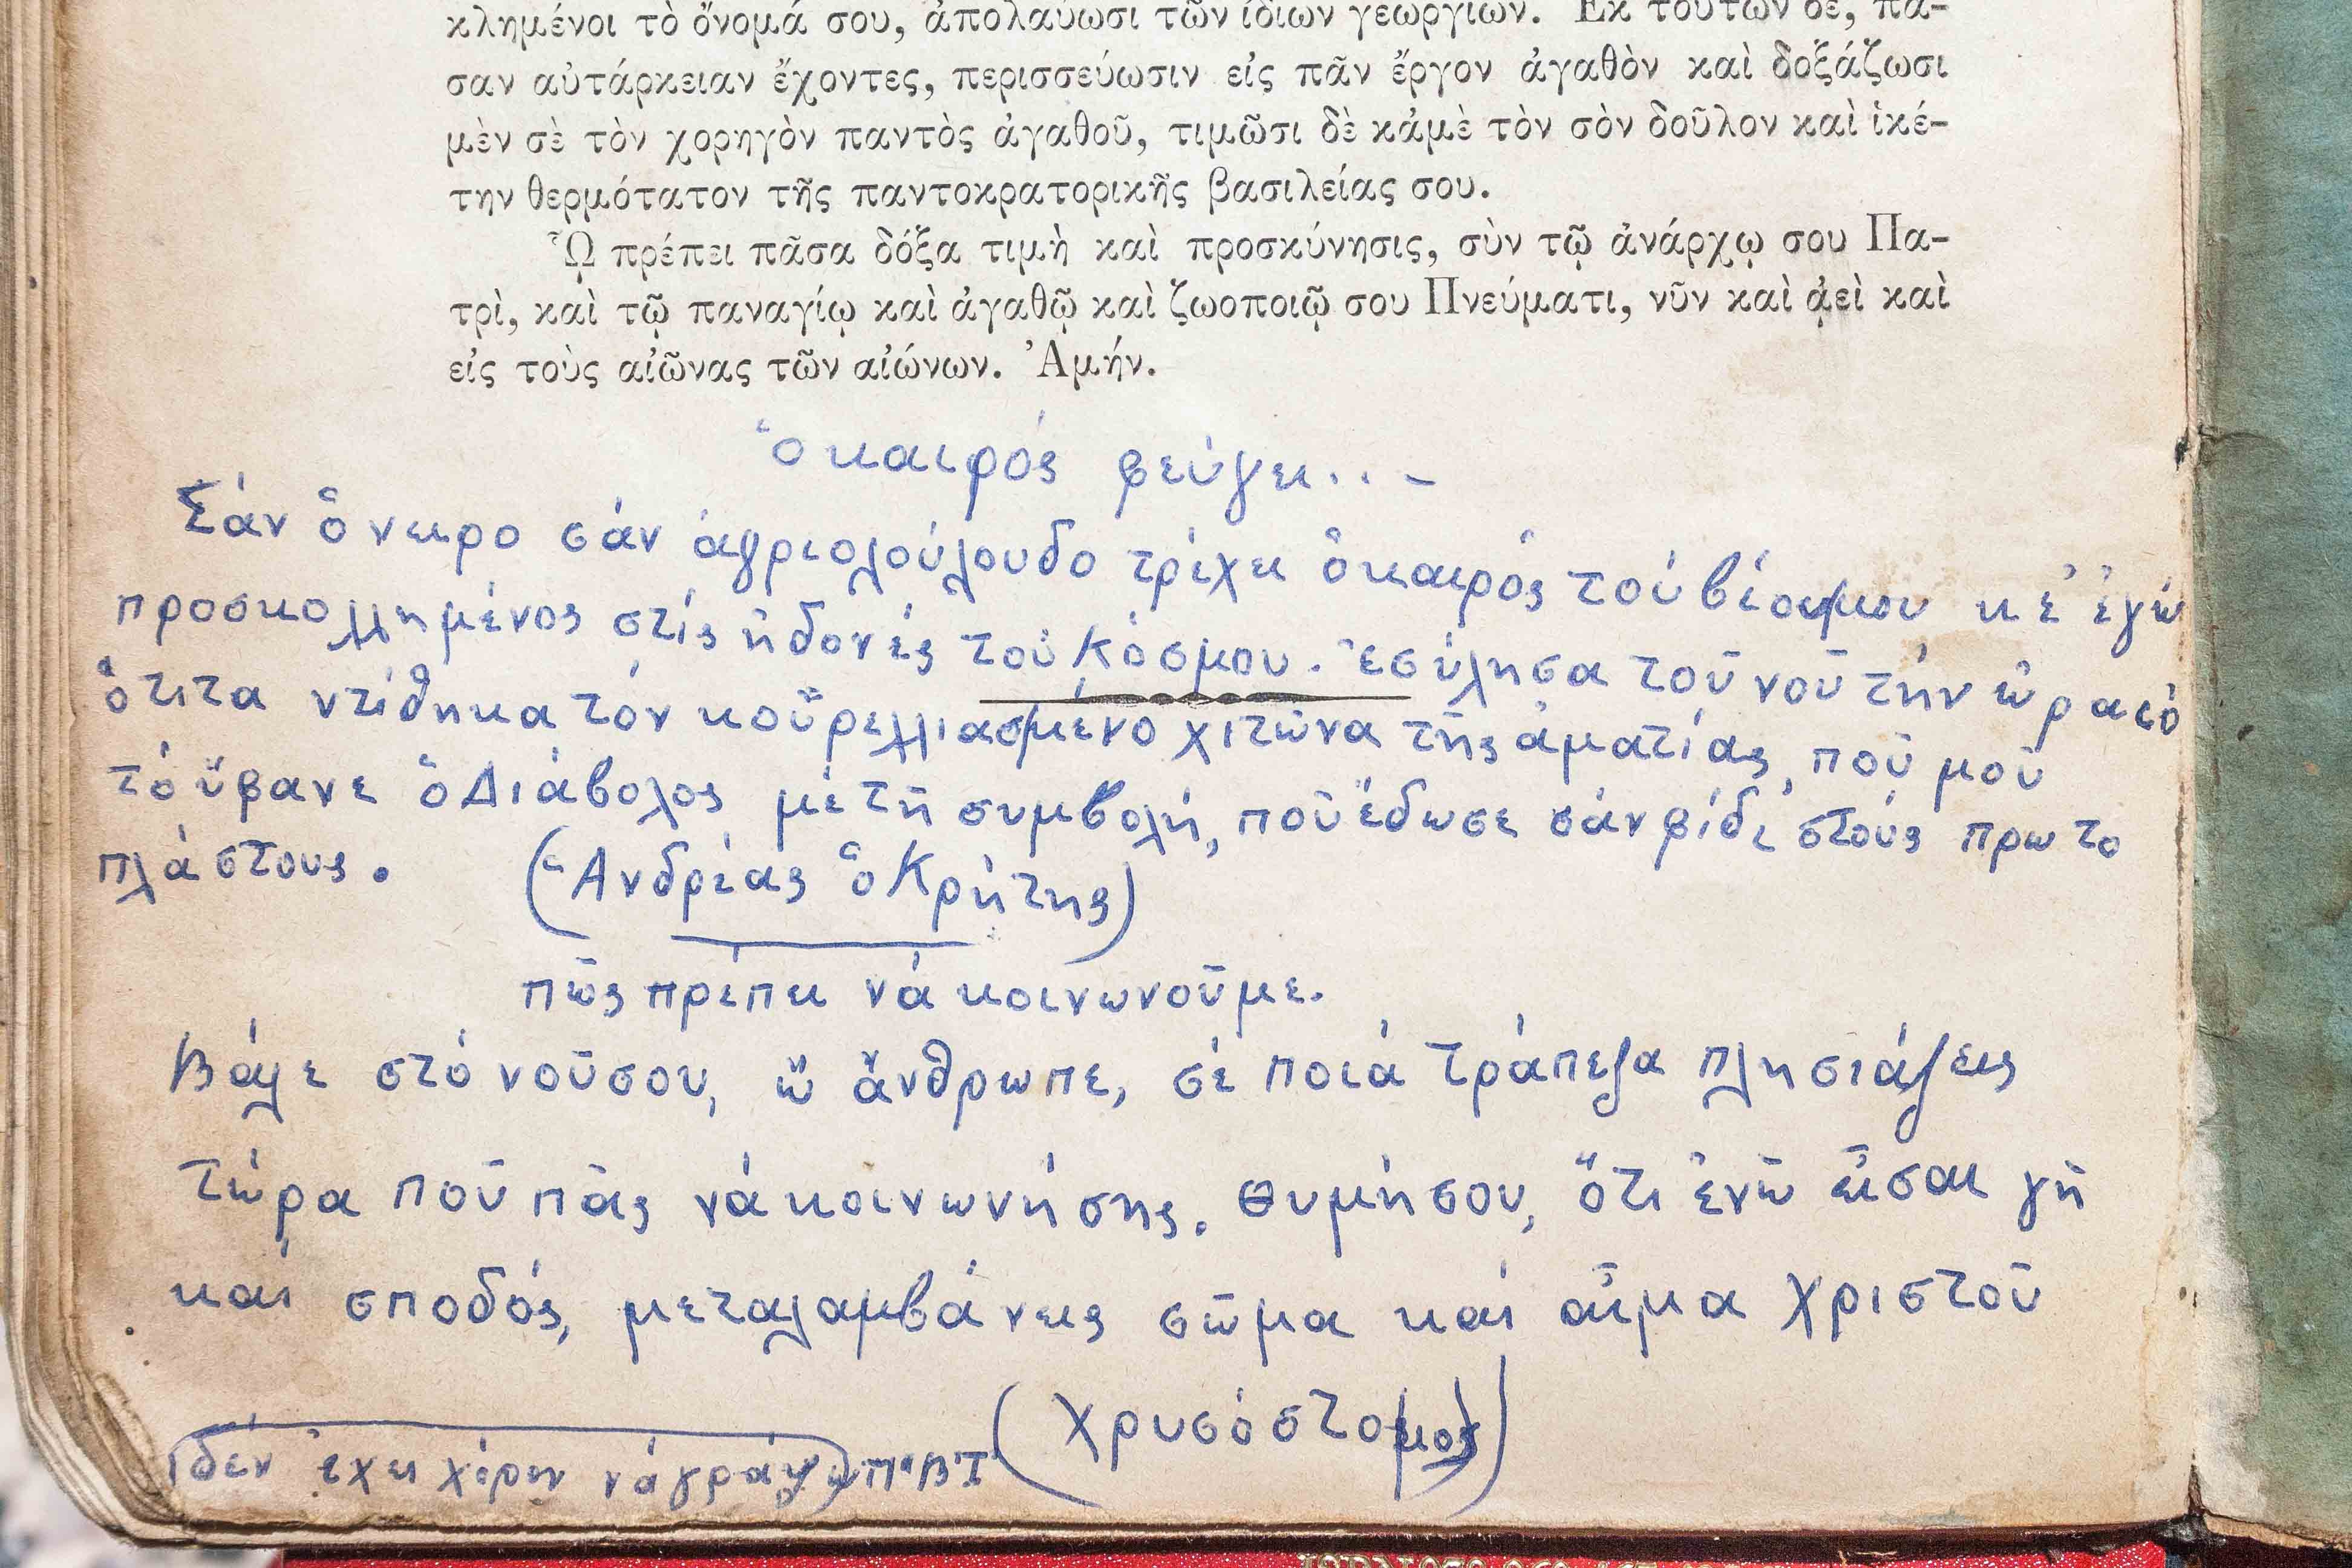 κλημένοι τὸ ὄνομά σου, ἀπολαύωσι τῶν ἰδίων γεωργίων. Ἐκ τούτων δέ, πᾶ-
σαν αὐτάρκειαν ἔχοντες, περισσεύωσιν εἰς πᾶν ἔργον ἀγαθὸν καὶ δοξάζωσι
μὲν σὲ τὸν χορηγὸν παντὸς ἀγαθοῦ, τιμῶσι δὲ κἀμὲ τὸν σὸν δοῦλον καὶ ἱκέ-
την θερμότατον τῆς παντοκρατορικῆς βασιλείας σου.
ᾯ πρέπει πᾶσα δόξα τιμὴ καὶ προσκύνησις, σὺν τῷ ἀνάρχῳ σου Πα-
τρὶ, καὶ τῷ παναγίῳ καὶ ἀγαθῷ καὶ ζωοποιῷ σου Πνεύματι, νῦν καὶ ἀεὶ καὶ
εἰς τοὺς αἰῶνας τῶν αἰώνων. Ἀμήν.
ὁ καιρός φεύγει... -
Σάν ὄνειρο σάν ἀγριολούλουδο τρέχει ὁ καιρός τοῦ βίου μου κ ἐ ἐγώ
προσκολλημένος στίς ἡδονές τοῦ Κόσμου. ἐσύλησα τοῦ νοῦ τήν ὡραιό
ότιτα ντίθηκα τόν κουρελλιασμένο χιτώνα τῆς ἁματίας, ποῦ μοῦ
τό ὕφανε ὁ Διάβολος μέ τῆ συμβολή, ποῦ ἔδωσε σάν φίδι στούς πρωτο
πλάστους. (Ἀνδρέας ὁ Κρήτης)
πῶς πρέπει νά κοινωνοῦμε.
Βάλε στό νοῦ σου, ὦ ἄνθρωπε, σέ ποιά τράπεζα πλησιάζεις
τώρα ποῦ πᾶς νά κοινωνήσης. Θυμήσου, ὅτι ἐνῶ εἶσαι γῆ
καί σποδός, μεταλαμβάνεις σῶμα καί αἷμα Χριστοῦ
(Χρυσόστομος)
δέν ἔχει χόρεν νά γράψω Π.Β.Ι